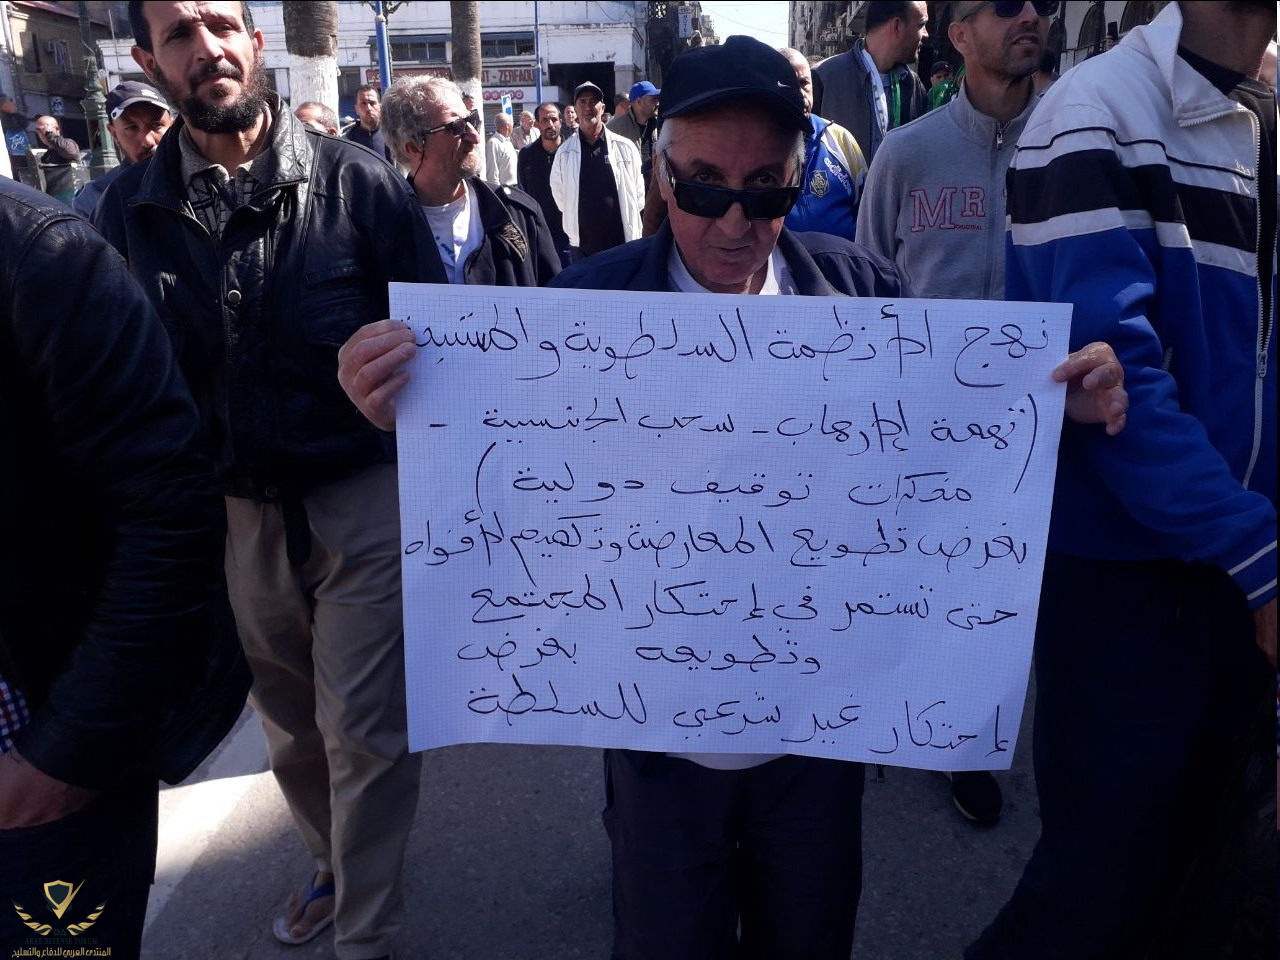 ZERFAOU
MR
نهج الأنظمة السلطوية والمستبدة
(تهمة الإرهاب - سحب الجنسية -
مذكرات توقيف دولية)
بغرض تطويع المعارضة وتكميم الأفواه
حتى تستمر في إحتكار المجتمع
وتطويعه بغرض
إحتكار غير شرعي للسلطة
ARAB DEFENSE FORUM
المنتدى العربي للدفاع والتسليح